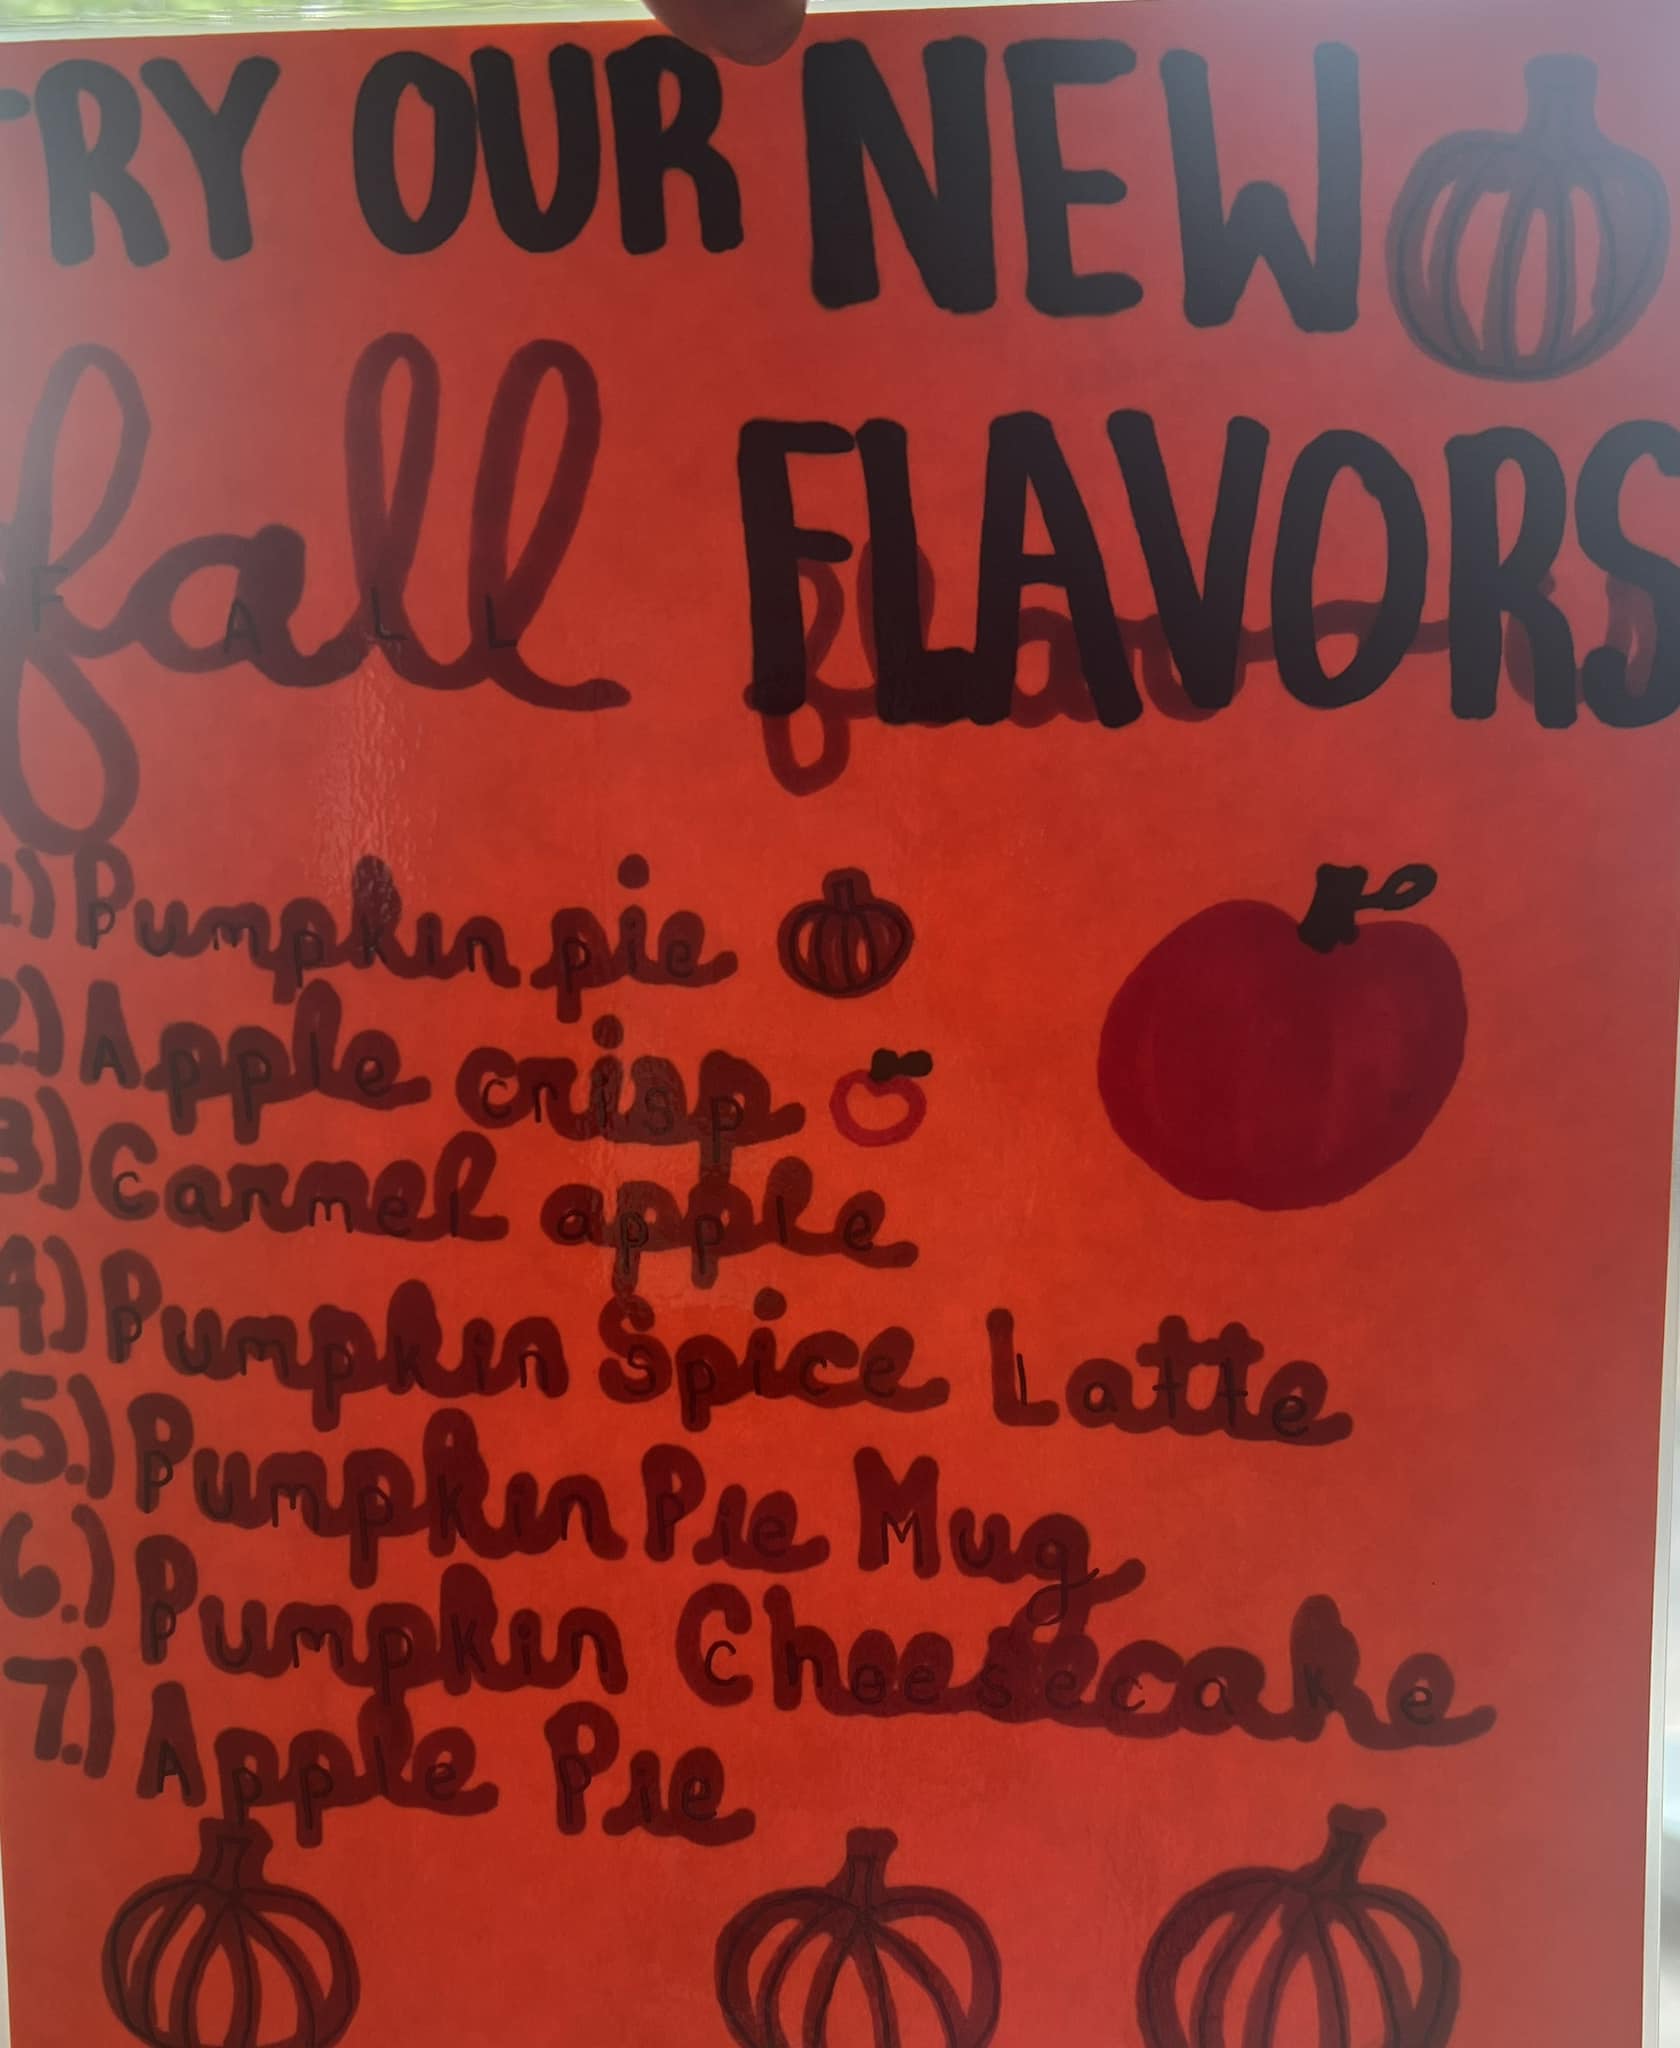 TRY OUR NEW
fall FLAVORS
1.) Pumpkin pie
2.) Apple crisp
3.) Carmel apple
4.) Pumpkin Spice Latte
5.) Pumpkin Pie Mug
6.) Pumpkin Cheesecake
7.) Apple Pie